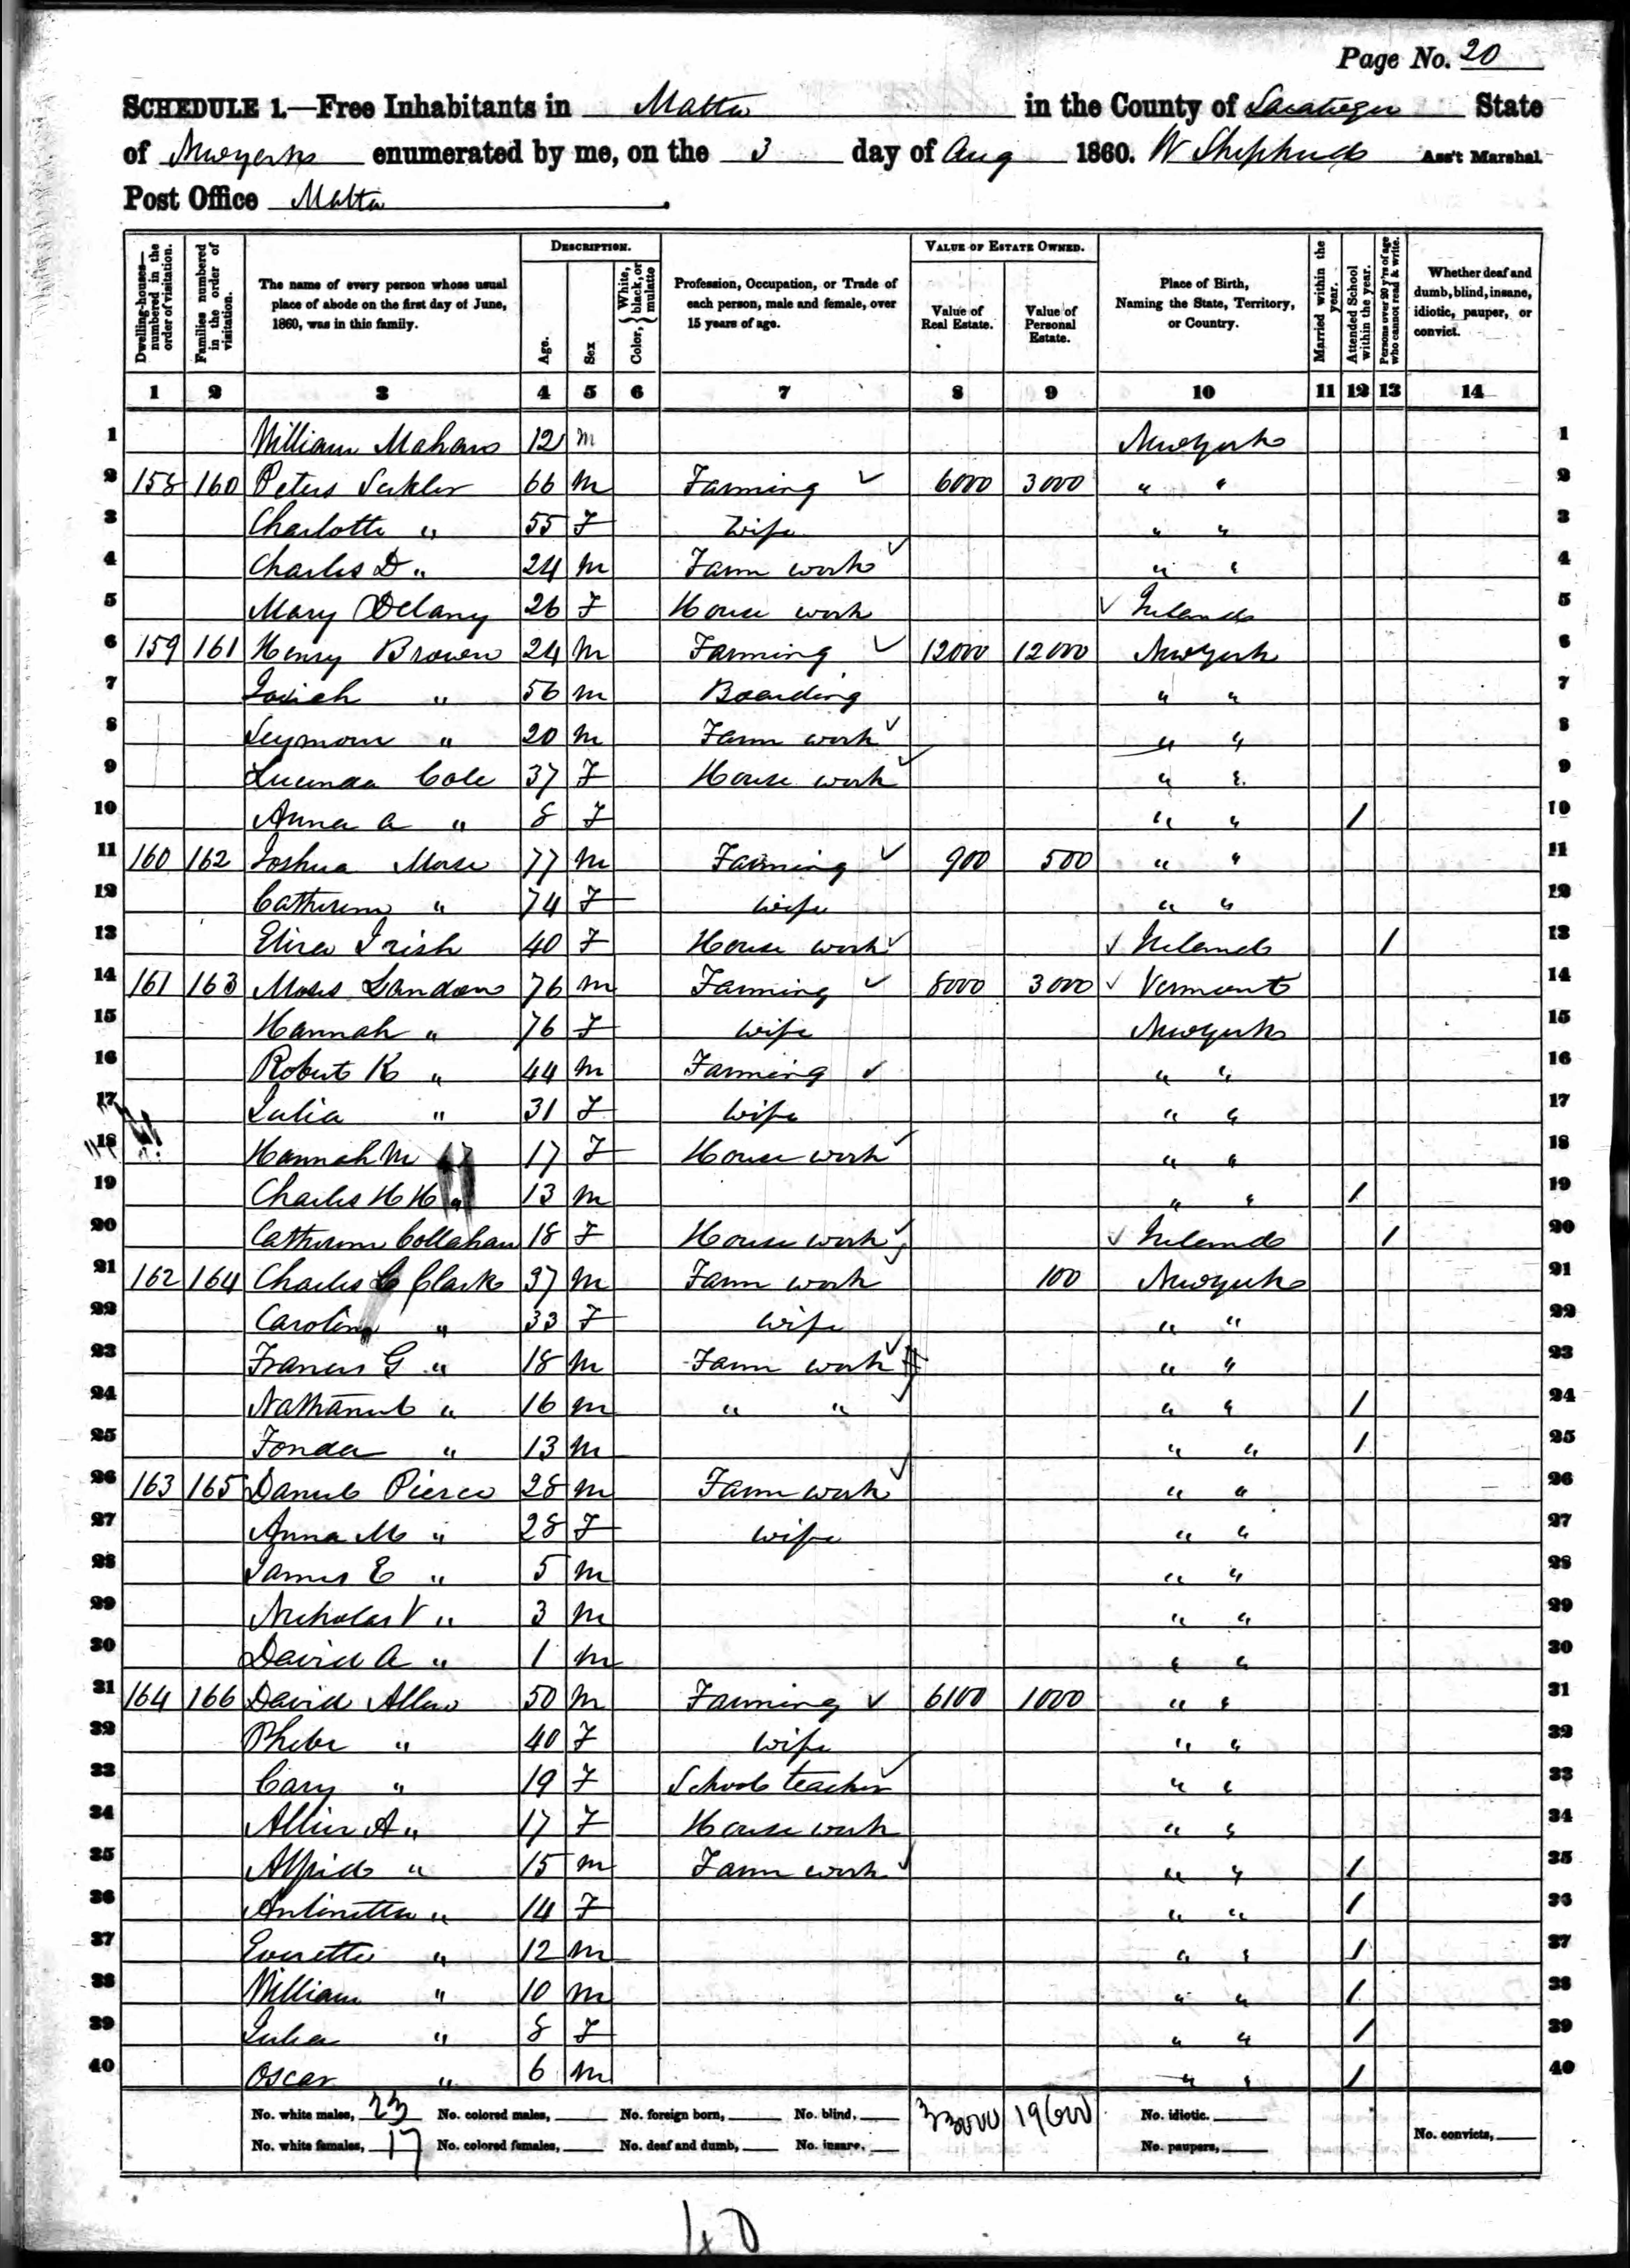 Page No. 20
SCHEDULE 1.—Free Inhabitants in Malta in the County of Saratoga State
of Newyork enumerated by me, on the 3 day of Aug 1860. W Shepherd Ass't Marshal.
Post Office Malta.
Dwelling-houses—numbered in the order of visitation. Families numbered in the order of visitation. The name of every person whose usual place of abode on the first day of June, 1860, was in this family. DESCRIPTION. Age. Sex Color, { White, black, or mulatto Profession, Occupation, or Trade of each person, male and female, over 15 years of age. VALUE OF ESTATE OWNED. Value of Real Estate. Value of Personal Estate. Place of Birth, Naming the State, Territory, or Country. Married within the year. Attended School within the year. Persons over 20 y'rs of age who cannot read & write. Whether deaf and dumb, blind, insane, idiotic, pauper, or convict.
1 2 3 4 5 6 7 8 9 10 11 12 13 14
1 William Mahan 12 m Newyork 1
2 158 160 Peter 66 m Farming 6000 3000 " " 2
3 Charlotte " 55 F Wife " " 3
4 Charles D " 24 m Farm work " " 4
5 Mary Delany 26 F House work Ireland 5
6 159 161 Henry Brown 24 m Farming 12000 12000 Newyork 6
7 Josiah " 56 m Boarding " " 7
8 Seymour " 20 m Farm work " " 8
9 Lucinda Cole 37 F House work " " 9
10 Anna A " 8 F " " 1 10
11 160 162 Joshua More 77 m Farming 900 500 " " 11
12 Catherine " 74 F Wife " " 12
13 Eliza Irish 40 F House work Ireland 1 13
14 161 163 Moses Landon 76 m Farming 8000 3000 Vermont 14
15 Hannah " 76 F Wife Newyork 15
16 Robert K " 44 m Farming " " 16
17 Julia " 31 F Wife " " 17
18 Hannah M " 17 F House work " " 18
19 Charles H H " 13 m " " 1 19
20 Catherine Collahan 18 F House work Ireland 1 20
21 162 164 Charles C Clark 37 m Farm work 100 Newyork 21
22 Caroline " 33 F Wife " " 22
23 Francis G " 18 m Farm work " " 23
24 Nathaniel " 16 m " " " " 1 24
25 Fonda " 13 m " " 1 25
26 163 165 Daniel Pierce 28 m Farm work " " 26
27 Anna M " 28 F Wife " " 27
28 James E " 5 m " " 28
29 Nicholas V " 3 m " " 29
30 David A " 1 m " " 30
31 164 166 David Allen 50 m Farming 6100 1000 " " 31
32 Phebe " 40 F Wife " " 32
33 Cary " 19 F School teacher " " 33
34 A " 17 F House work " " 34
35 Alfred " 15 m Farm work " " 1 35
36 Antinette " 14 F " " 1 36
37 Everette " 12 m " " 1 37
38 William " 10 m " " 1 38
39 Julia " 8 F " " 1 39
40 Oscar " 6 m " " 1 40
No. white males, 23 No. colored males, No. foreign born, No. blind, 33000 19600 No. idiotic.
No. white females, 17 No. colored females, No. deaf and dumb, No. insane, No. paupers, No. convicts,
40